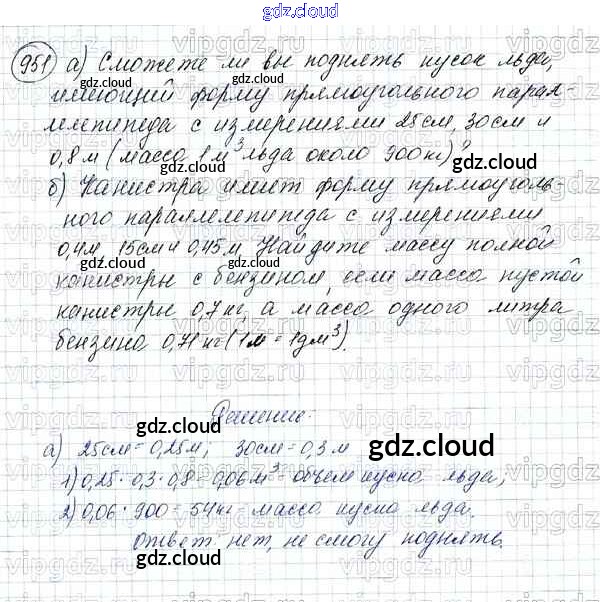 gdz.cloud
951 а) Сможете ли вы поднять кусок льда,
имеющий форму прямоугольного парал-
лелепипеда с измерениями 25см, 30см и
0,8 м (масса 1м³ льда около 900кг)?
б) Канистра имеет форму прямоуголь
ного параллелепипеда с измерениями
0,4м, 15см и 0,45 м. Найдите массу полной
канистры с бензином, если масса пустой
канистры 0,7 кг, а масса одного литра
бензина 0,71 кг (1л = 1дм³).
Решение:
а) 25см = 0,25м; 30см = 0,3 м
1) 0,25 · 0,3 · 0,8 = 0,06м³ - объем куска льда;
2) 0,06 · 900 = 54кг - масса куска льда.
Ответ нет, не смогу поднять.